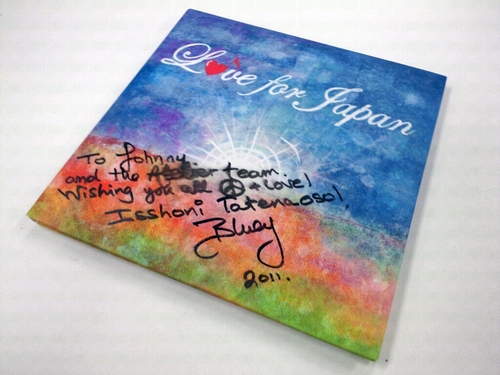 Love for Japan
To Johnny
and the Atelier team
Wishing you all ☮ + Love!
Isshoni Tatenaoso!
Bluey
2011.